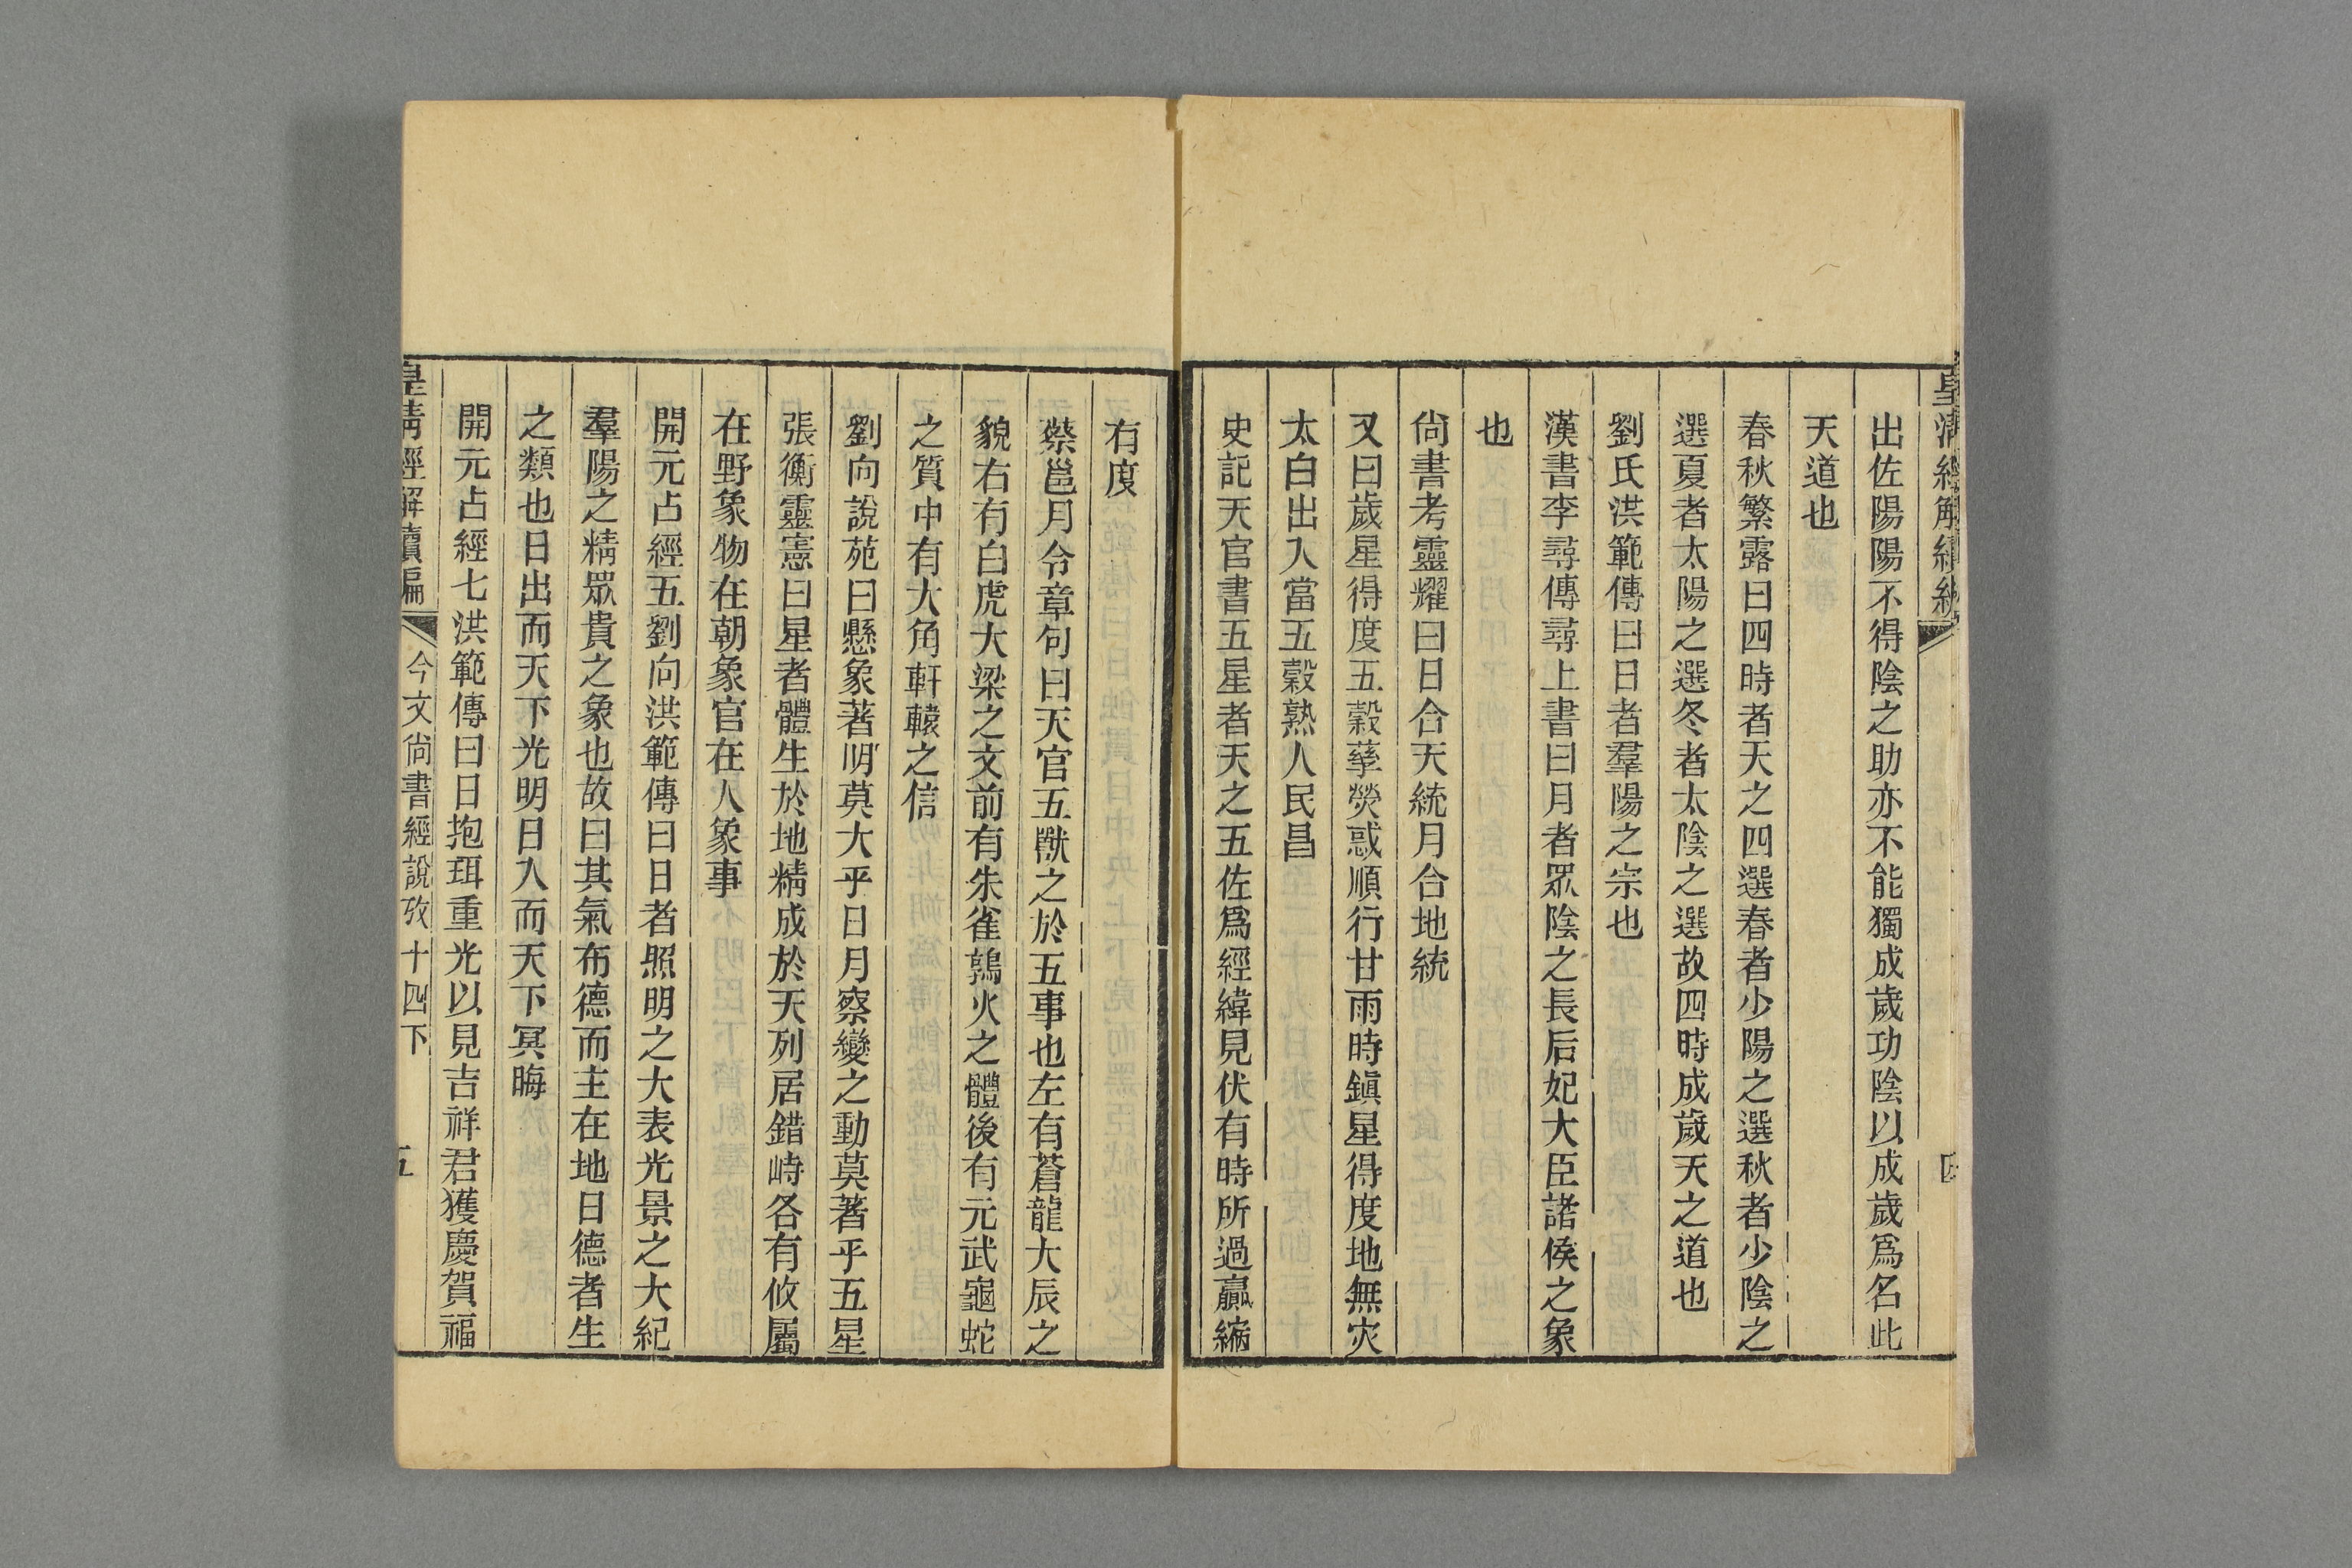 皇清經解續編
四
出佐陽陽不得陰之助亦不能獨成歲功陰以成歲爲名此
天道也
春秋繁露曰四時者天之四選春者少陽之選秋者少陰之
選夏者太陽之選冬者太陰之選故四時成歲天之道也
劉氏洪範傳曰日者羣陽之宗也
漢書李尋傳尋上書曰月者眾陰之長后妃大臣諸侯之象
也
尙書考靈耀曰日合天統月合地統
又曰歲星得度五穀孳熒惑順行甘雨時鎮星得度地無灾
太白出入當五穀熟人民昌
史記天官書五星者天之五佐爲經緯見伏有時所過贏縮
有度
蔡邕月令章句曰天官五獸之於五事也左有蒼龍大辰之
貌右有白虎大梁之文前有朱雀鶉火之體後有元武龜蛇
之質中有大角軒轅之信
劉向說苑曰懸象著明莫大乎日月察變之動莫著乎五星
張衡靈憲曰星者體生於地精成於天列居錯峙各有攸屬
在野象物在朝象官在人象事
開元占經五劉向洪範傳曰日者照明之大表光景之大紀
羣陽之精眾貴之象也故曰其氣布德而主在地日德者生
之類也日出而天下光明日入而天下冥晦
開元占經七洪範傳曰日抱珥重光以見吉祥君獲慶賀福
皇清經解續編
今文尙書經說攷十四下
五